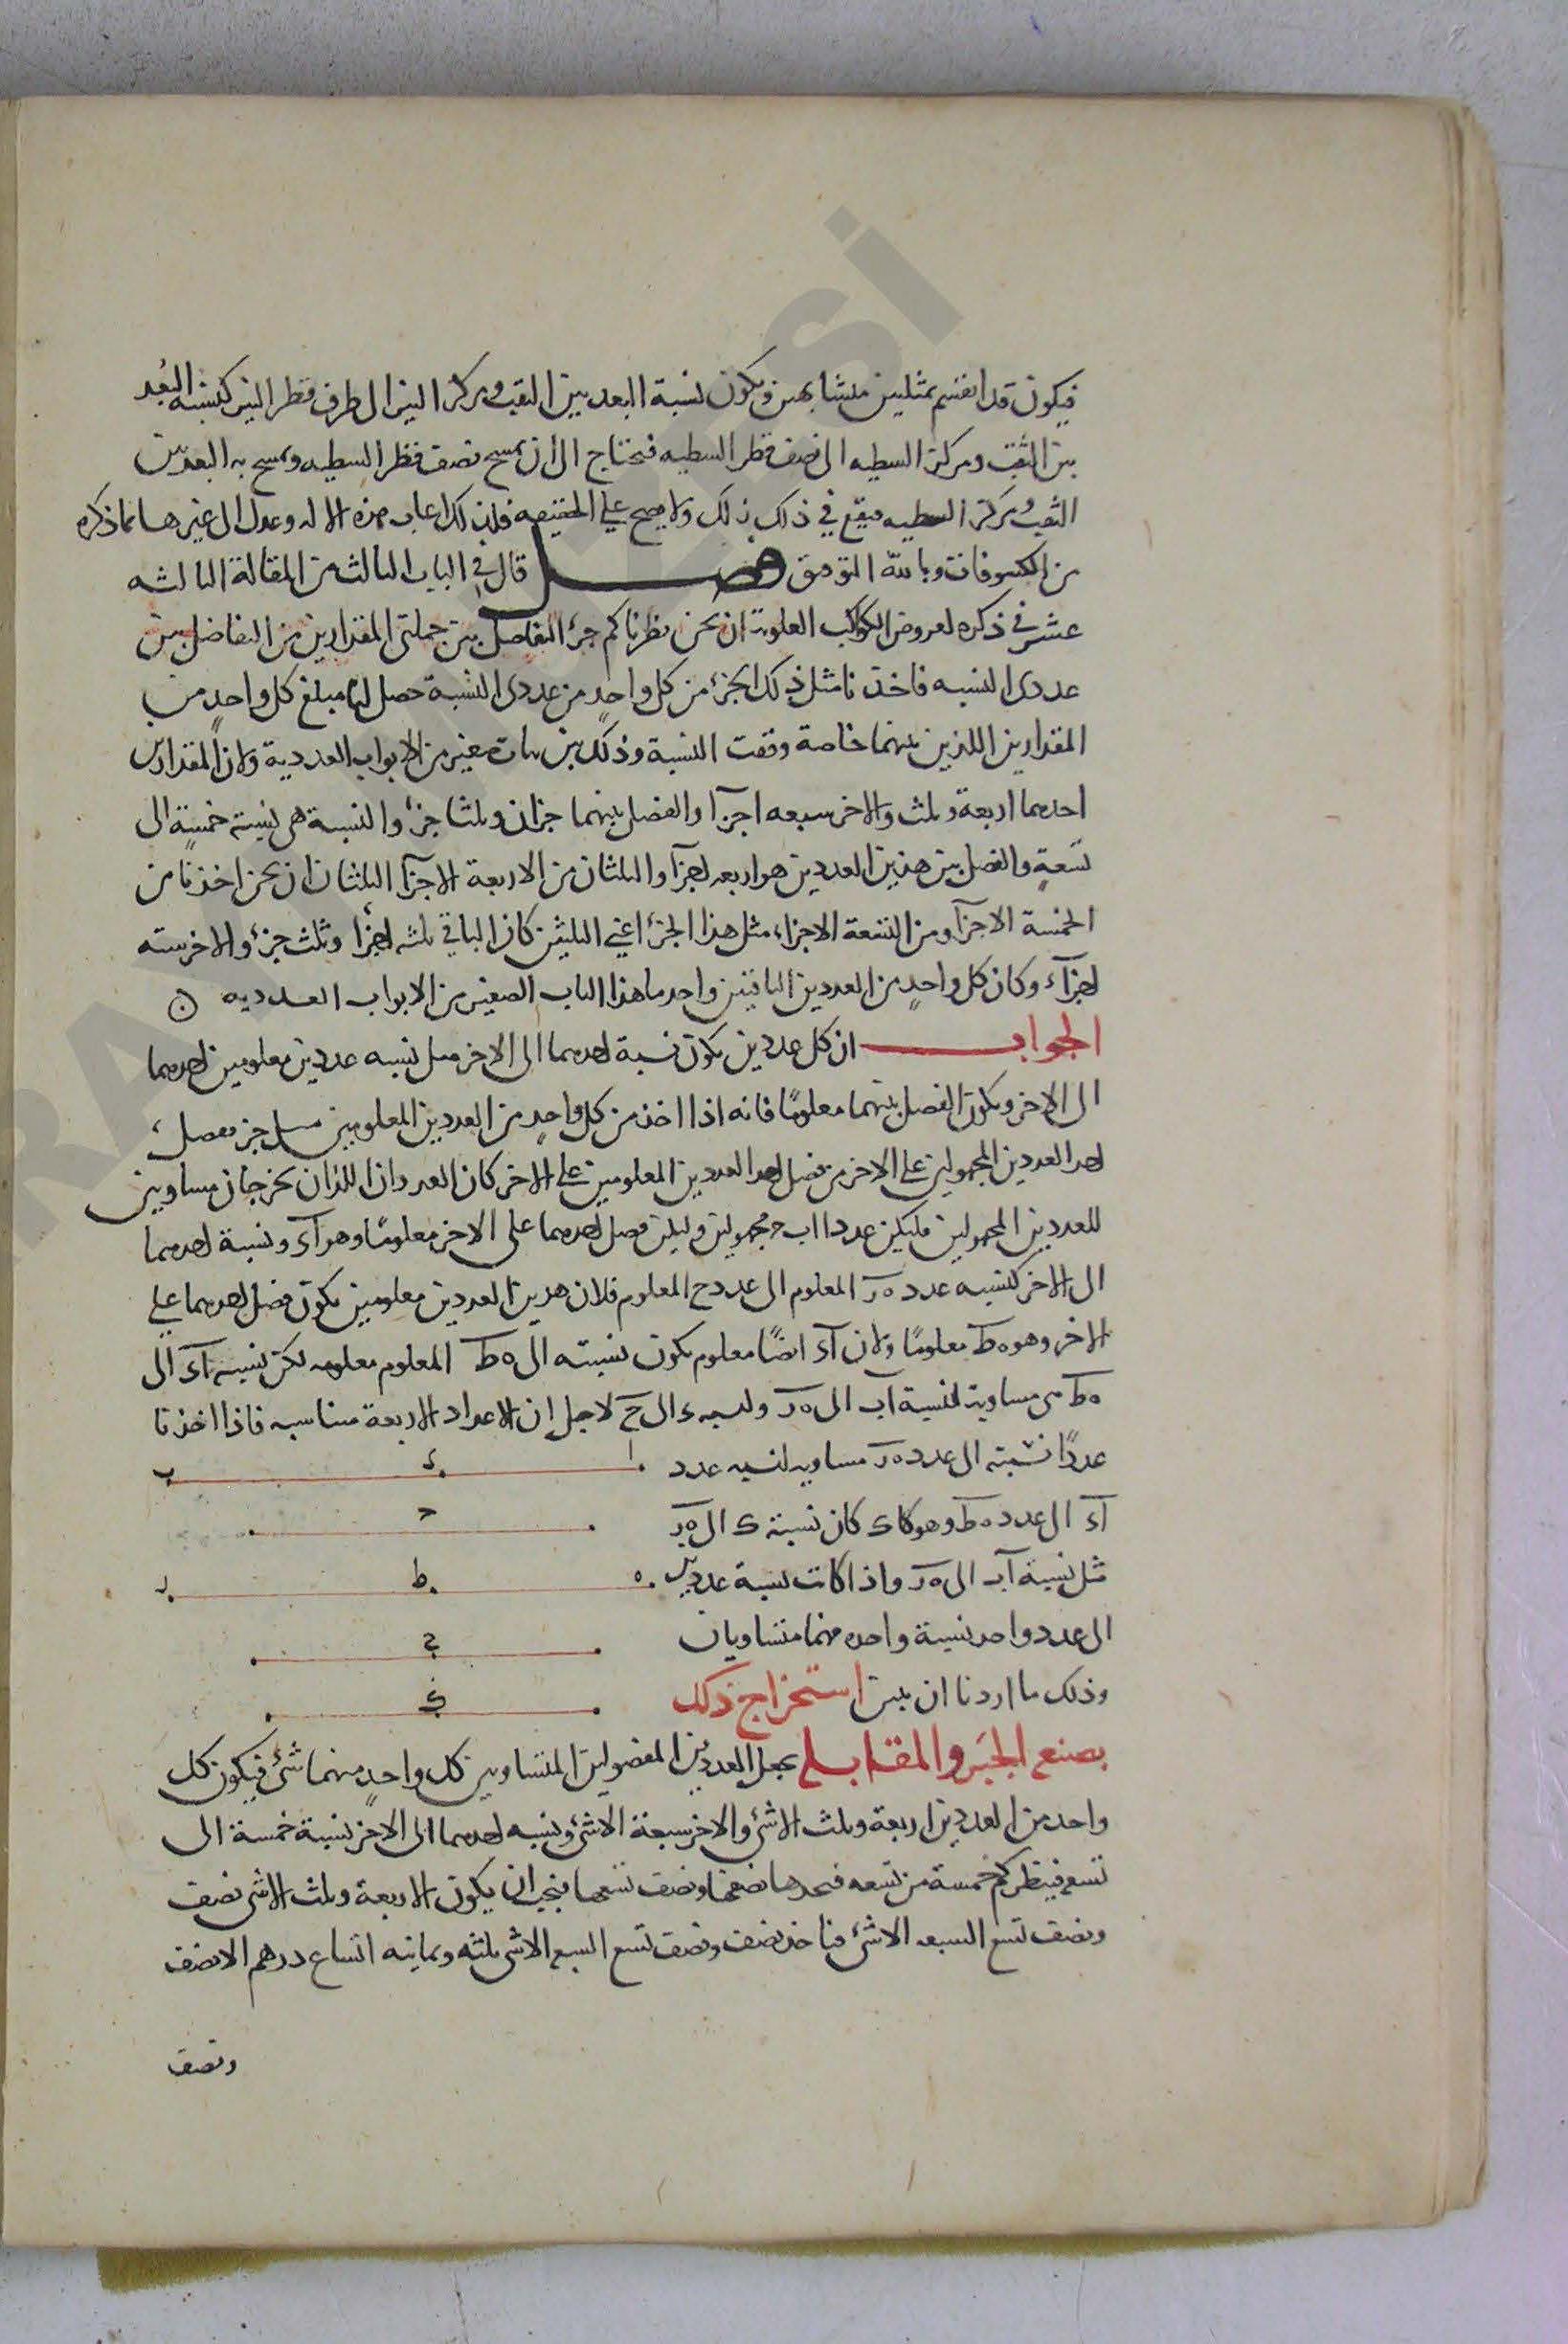 فيكون قد انقسم بمثلثين متشابهين ويكون نسبة البعد بين الثقب ومركز النير الى طرف قطر النير كنسبة البُعد
بين الثقب ومركز السطيه الى نصف قطر السطيه فنحتاج الى ان نمسح نصف قطر السطيه ونمسح به البعد بين
الثقب ومركز السطيه فيقع في ذلك زلل ولا يصح على الحقيقه فلذلك اعاب هذه الاله وعدل الى غيرها مما ذكره
من الكسوفات وبالله التوفيق فصل قال في الباب الثالث من المقالة الثالثه
عشر في ذكره لعروض الكواكب العلويه ان نحن نظرنا كم جزء التفاضل بين جملتي المقدارين من التفاضل بين
عددي النسبه فاخذنا مثل ذلك الجزء من كل واحدٍ من عددي النسبة حصل لنا مبلغ كل واحدٍ من
المقدارين اللذين بينهما خاصة وقعت النسبة وذلك بين بباب صغير من الابواب العددية ولان المقدارين
احدهما اربعة وثلث والاخر سبعه اجزآ والفضل بينهما جزان وثلثا جزء والنسبة هي نسبة خمسةٍ الى
تسعةٍ والفضل بين هذين العددين هو اربعه اجزآ والثلثان من الاربعة الاجزآ الثلثان ان نحن اخذنا من
الخمسة الاجزآ ومن التسعة الاجزاء مثل هذا الجزء اعني الثلثين كان الباقي ثلثه اجزآ وثلث جزء والاخر سته
اجزآء وكان كل واحدٍ من العددين الباقيين واحد ما هذا الباب الصغير من الابواب العدديه
الجواب ان كل عددين يكون نسبة احدهما الى الاخر مثل نسبه عددين معلومين احدهما
الى الاخر ويكون الفضل بينهما معلومًا فانه اذا اخذ من كل واحدٍ من العددين المعلومين مثل جزء فضل
احد العددين المجهولين على الاخر من فضل احد العددين المعلومين على الاخر كان العددان اللذان يخرجان مساويين
للعددين المجهولين فليكن عددا اب ج مجهولين وليكن فضل احدهما على الاخر معلومًا وهو آء ونسبة احدهما
الى الاخر كنسبه عدد ه ر المعلوم الى عدد ح المعلوم فلان هذين العددين معلومين يكون فضل احدهما على
الاخر وهو ه ط معلومًا ولان آء ايضًا معلوم يكون نسبته الى ه ط المعلوم معلومه لكن نسبه آء الى
ه ط هي مساوية لنسبة اب الى ه ر ولنسبه ء الى ح لاجل ان الاعداد الاربعة متناسبه فاذا اخذنا
عددًا نسبته الى عدد ه ر مساويه لنسبه عدد
ا ء ب
آء الى عدد ه ط وهو كا ى كان نسبة ى الى ه ر
ج
مثل نسبة اب الى ه ر واذا كانت نسبة عددين
ه ط ر
الى عدد واحد نسبة واحده فهما متساويان
ح
وذلك ما اردنا ان نبين استخراج ذلك
ى
بصنع الجبر والمقابله نجعل العددين المفضولين المتساويين كل واحدٍ منهما شئ فيكون كل
واحد من العددين اربعة وثلث الا شئ والاخر سبعة الا شئ ونسبه احدهما الى الاخر نسبة خمسة الى
تسع فينظر كم خمسة من تسعه فنجدها نصفها ونصف تسعها فيجب ان يكون الاربعة وثلث الا شئ نصف
ونصف تسع السبعه الا شئ فناخذ نصف ونصف تسع السبع الا شئ ثلثه وثمانيه اتساع درهم الا نصف
ونصف